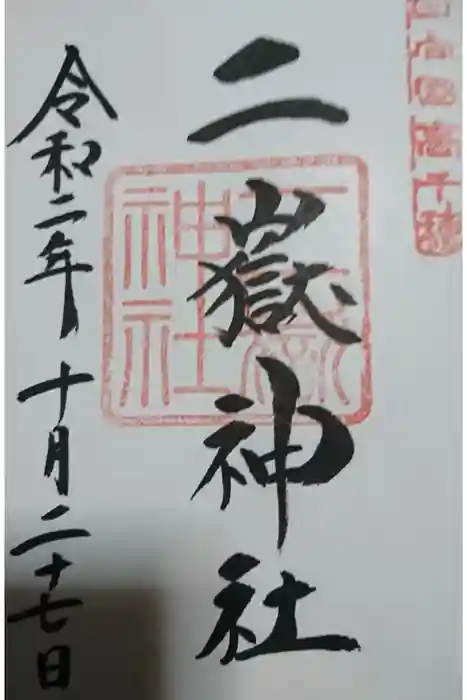 二嶽神社
令和二年十月二十七日
神社